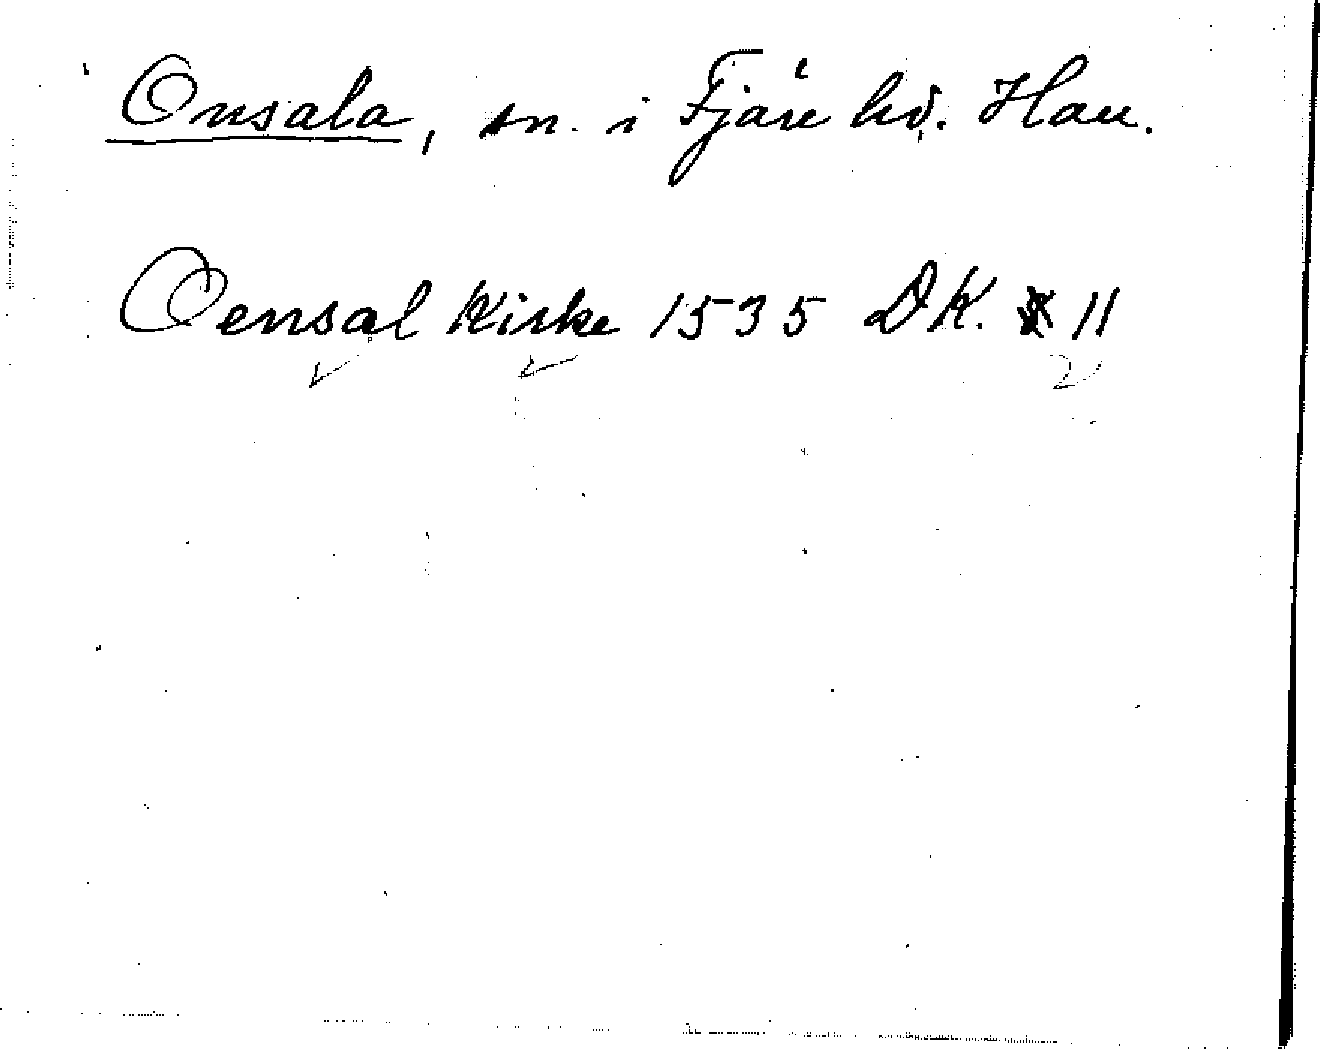 Onsala, sn. i Fjäre hd. Hall.
Oensal Kirke 1535 DK. 11